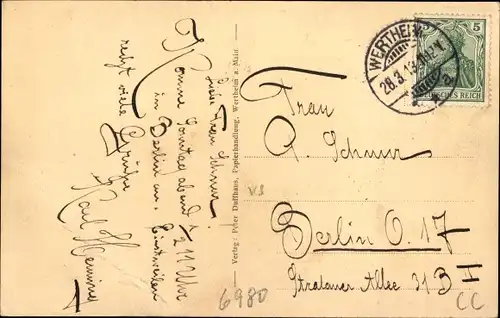 Liebe Frau Schnur!
Komme Sonntag abend ½ 11 Uhr
in Berlin an. Einstweilen
recht viele Grüße
Karl
Verlag: Peter Duffhaus, Papierhandlung, Wertheim a. Main.
WERTHEIM
28.3.13
5
DEUTSCHES REICH
Frau
A. Schnur
VS
Berlin O. 17
Stralauer Allee 21 B II
6980
CC